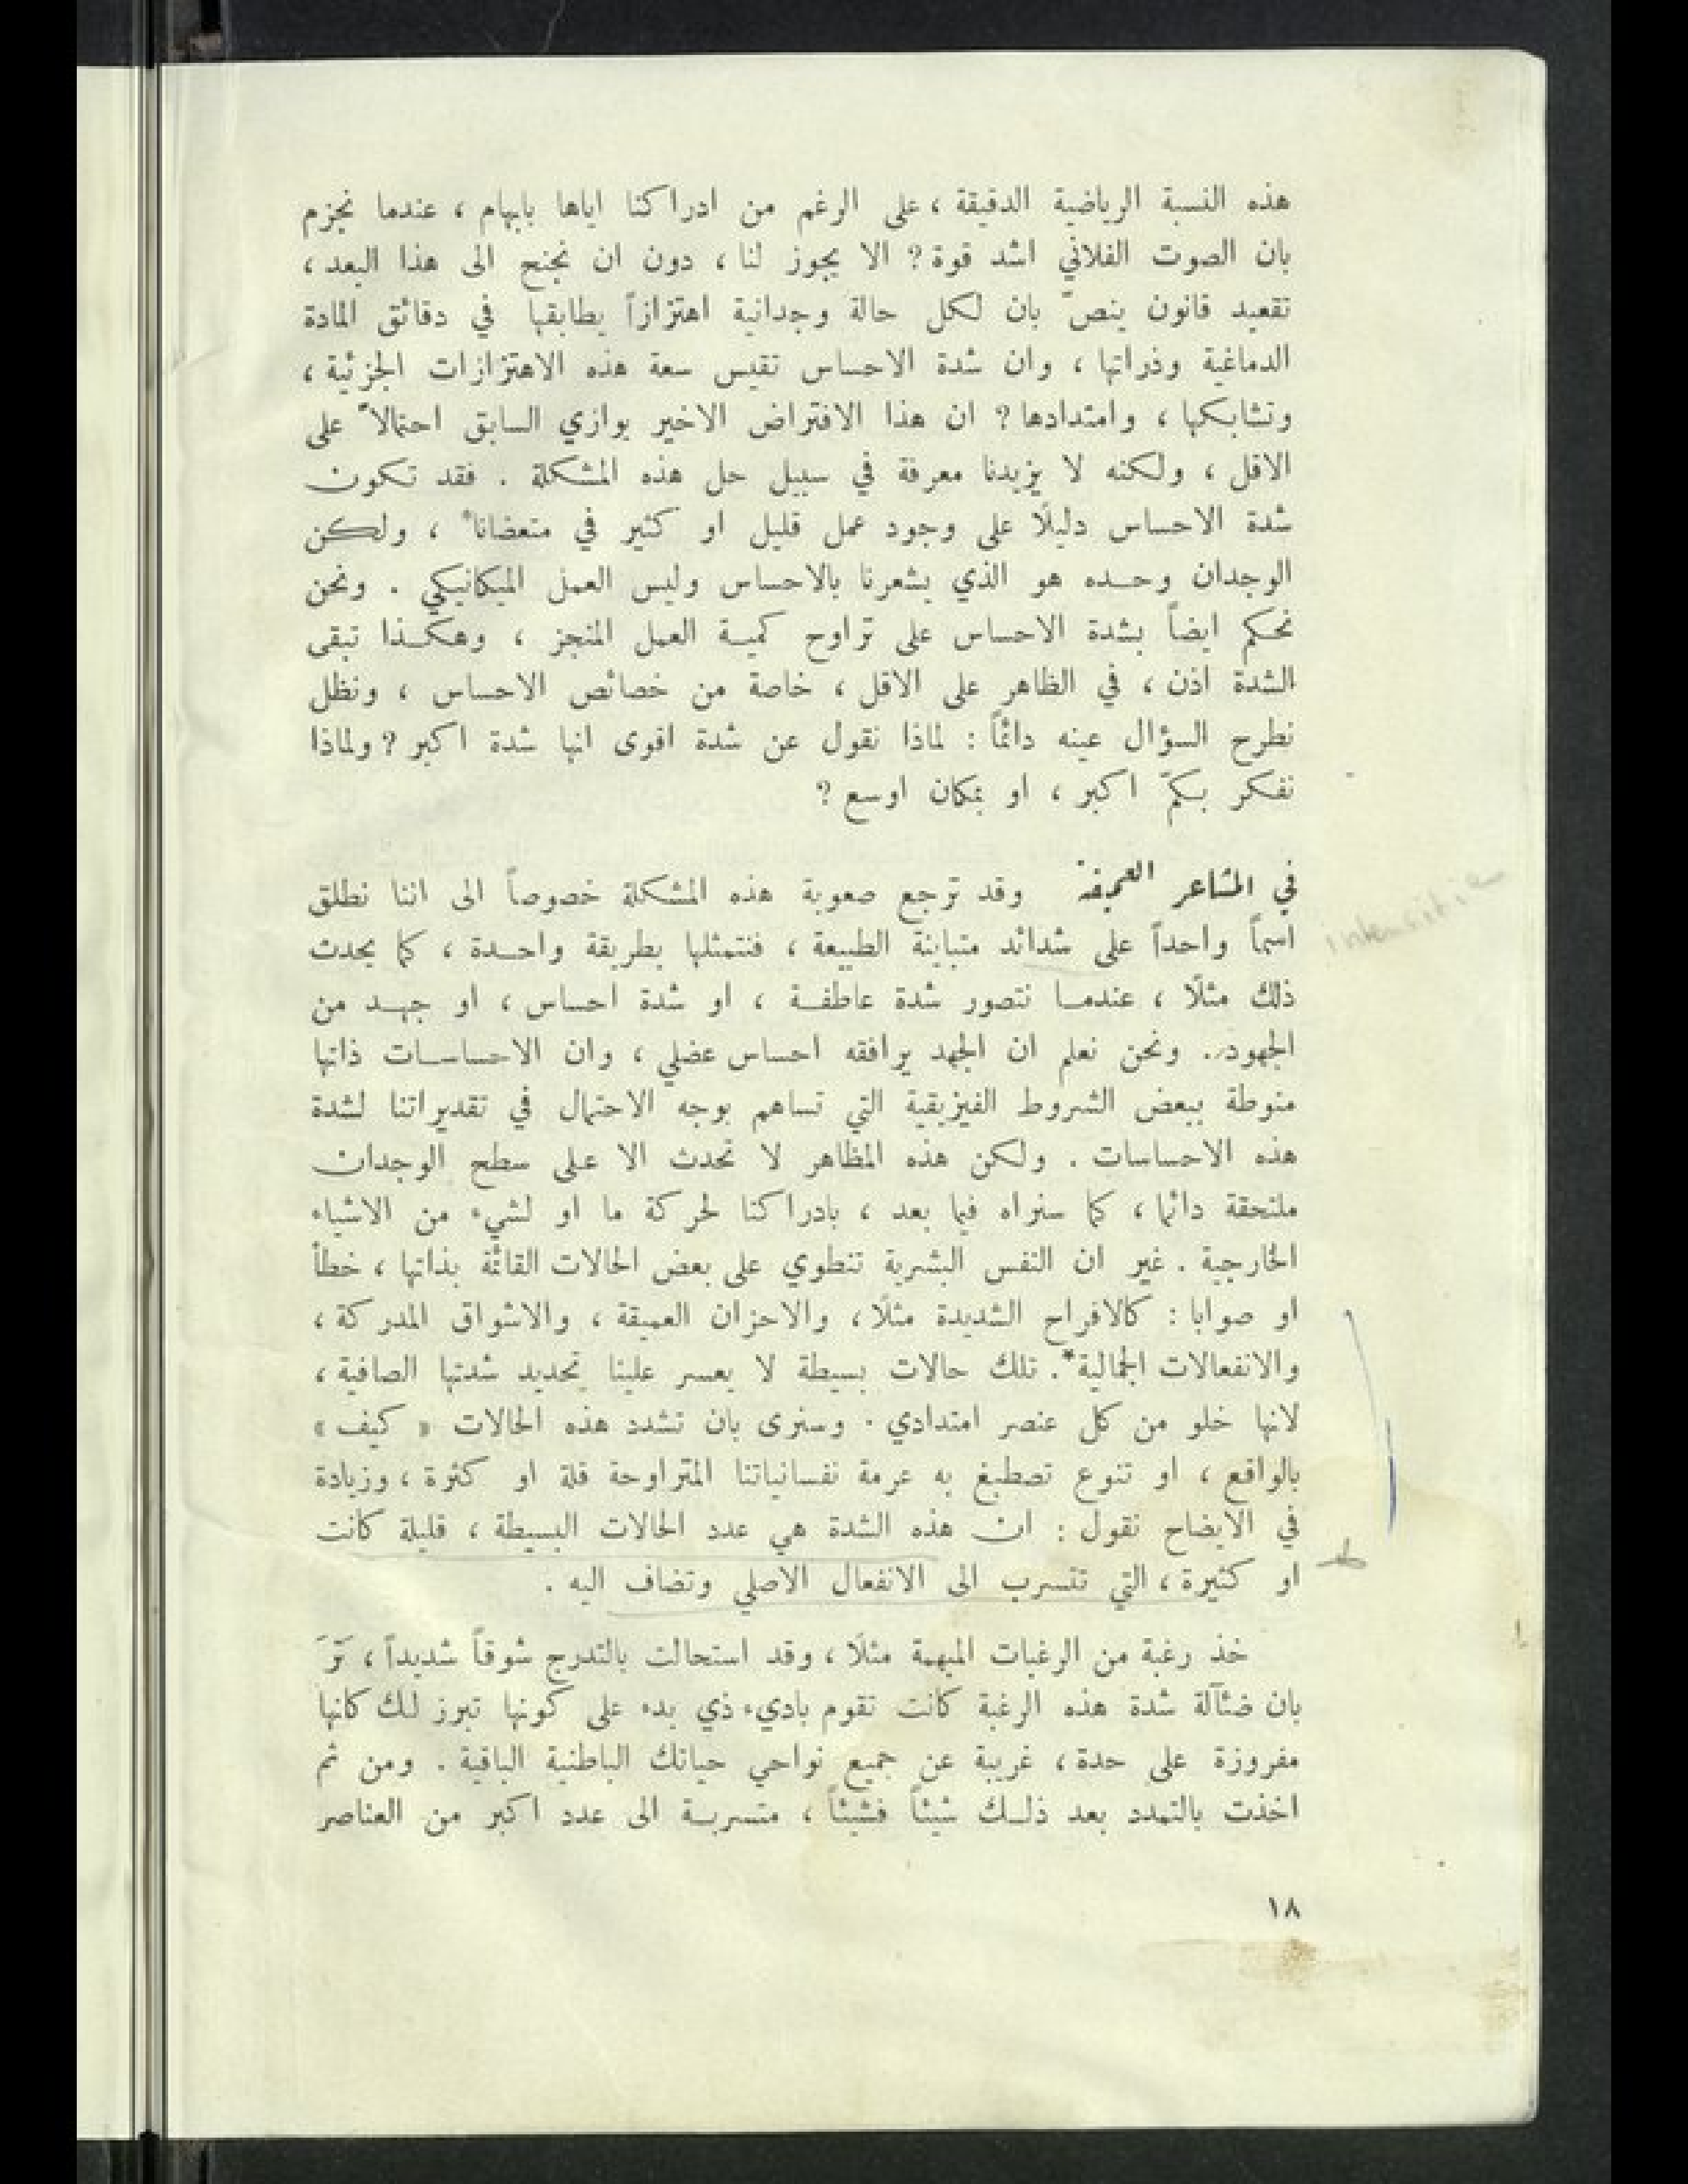 هذه النسبة الرياضية الدقيقة ، على الرغم من ادراكنا اياها بابهام ، عندما نجزم
بان الصوت الفلاني اشد قوة ? الا يجوز لنا ، دون ان نجنح الى هذا البعد ،
تقعيد قانون ينصّ بان لكل حالة وجدانية اهتزازاً يطابقها في دقائق المادة
الدماغية وذراتها ، وان شدة الاحساس تقيس سعة هذه الاهتزازات الجزئية ،
وتشابكها ، وامتدادها ? ان هذا الافتراض الاخير يوازي السابق احتمالاً على
الاقل ، ولكنه لا يزيدنا معرفة في سبيل حل هذه المشكلة . فقد تكون
شدة الاحساس دليلًا على وجود عمل قليل او كثير في متعضانا* ، ولكن
الوجدان وحده هو الذي يشعرنا بالاحساس وليس العمل الميكانيكي . ونحن
نحكم ايضاً بشدة الاحساس على تراوح كمية العمل المنجز ، وهكذا تبقى
الشدة اذن ، في الظاهر على الاقل ، خاصة من خصائص الاحساس ، ونظل
نطرح السؤال عينه دائماً : لماذا نقول عن شدة اقوى انها شدة اكبر ? ولماذا
نفكر بكمّ اكبر ، او بمكان اوسع ?
في المشاعر العميقة وقد ترجع صعوبة هذه المشكلة خصوصاً الى اننا نطلق
اسماً واحداً على شدائد متباينة الطبيعة ، فنتمثلها بطريقة واحدة ، كما يحدث
intensitie
ذلك مثلًا ، عندما نتصور شدة عاطفة ، او شدة احساس ، او جهد من
الجهود . ونحن نعلم ان الجهد يرافقه احساس عضلي ، وان الاحساسات ذاتها
منوطة ببعض الشروط الفيزيقية التي تساهم بوجه الاحتمال في تقديراتنا لشدة
هذه الاحساسات . ولكن هذه المظاهر لا تحدث الا على سطح الوجدان
ملتحقة دائما ، كما سنراه فيما بعد ، بادراكنا لحركة ما او لشيء من الاشياء
الخارجية . غير ان النفس البشرية تنطوي على بعض الحالات القائمة بذاتها ، خطأ
او صوابا : كالافراح الشديدة مثلًا ، والاحزان العميقة ، والاشواق المدركة ،
والانفعالات الجمالية* . تلك حالات بسيطة لا يعسر علينا تحديد شدتها الصافية ،
لانها خلو من كل عنصر امتدادي . وسنرى بان تشدد هذه الحالات « كيف »
بالواقع ، او تنوع تصطبغ به عرمة نفسانياتنا المتراوحة قلة او كثرة ، وزيادة
في الايضاح نقول : ان هذه الشدة هي عدد الحالات البسيطة ، قليلة كانت
او كثيرة ، التي تتسرب الى الانفعال الاصلي وتضاف اليه .
خذ رغبة من الرغبات المبهمة مثلًا ، وقد استحالت بالتدرج شوقاً شديداً ، تَرَ
بان ضئآلة شدة هذه الرغبة كانت تقوم باديء ذي بدء على كونها تبرز لك كانها
مفروزة على حدة ، غريبة عن جميع نواحي حياتك الباطنية الباقية . ومن ثم
اخذت بالتمدد بعد ذلك شيئاً فشيئاً ، متسربة الى عدد اكبر من العناصر
١٨